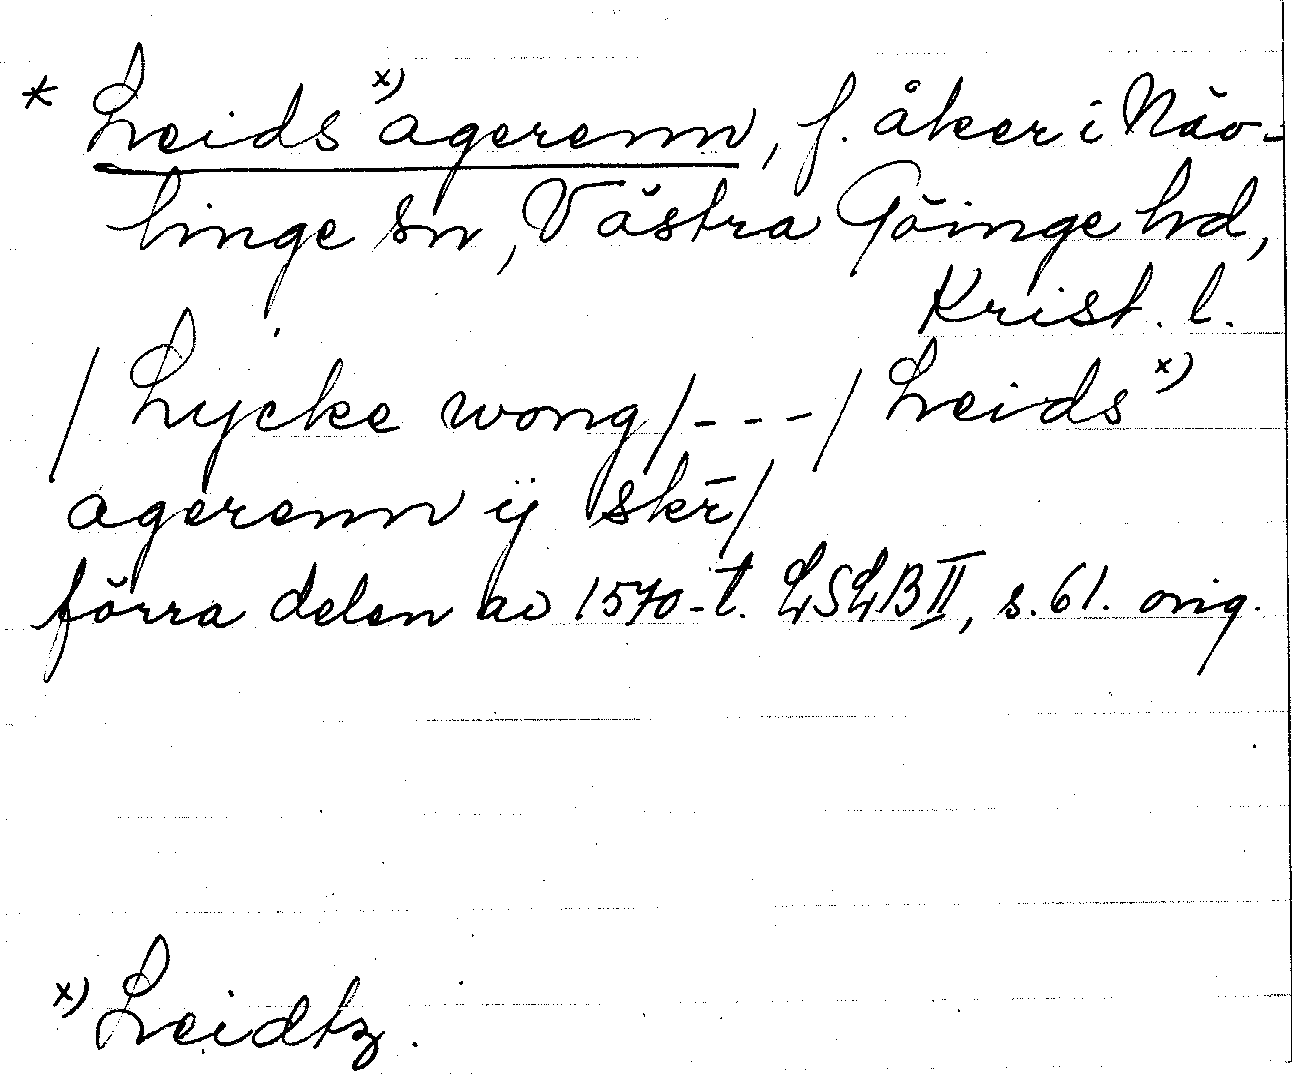 * Leids x) agerenn, f. åker i Näv-
linge sn, Västra Göinge hd,
Krist. l.
/ Lycke wong/---/ Leids x)
agerenn ij skr̄/
förra delen av 1570-t. LSLB II, s. 61. orig.
x) Leidtz.